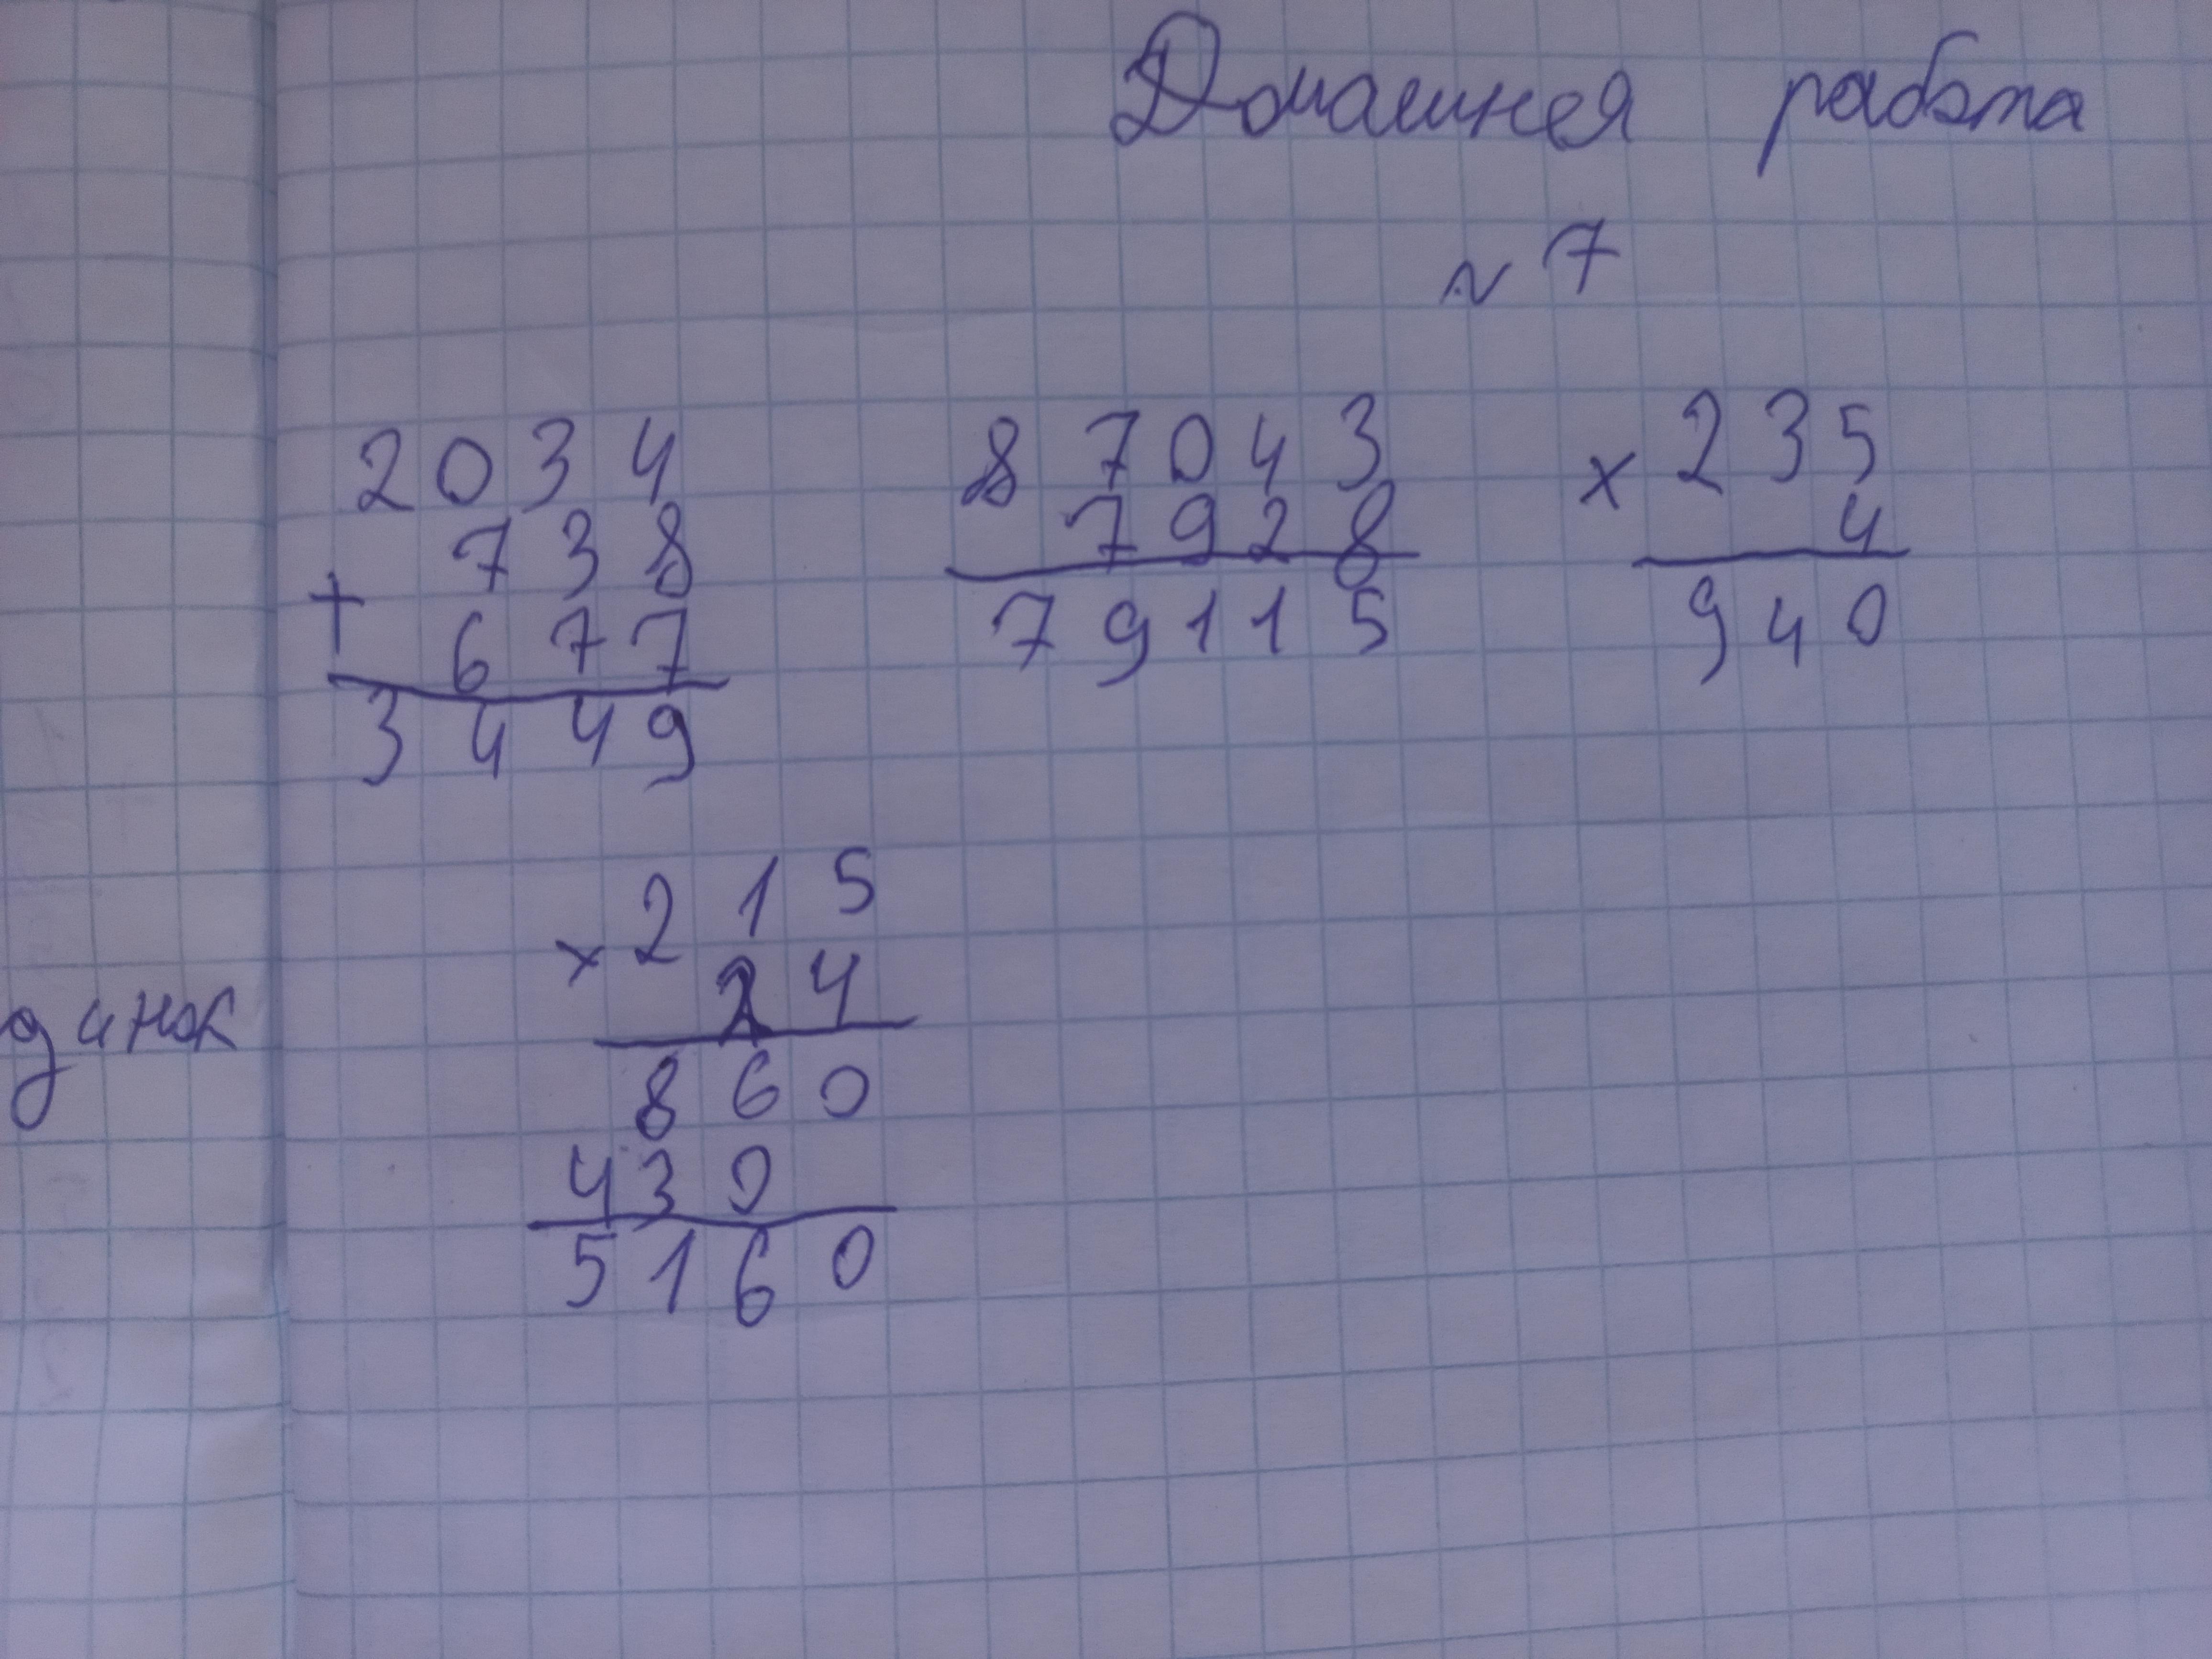 Домашняя работа
№ 7
2034
738
+ 677
3449
87043
7928
79115
× 235
4
940
× 215
24
860
430
5160